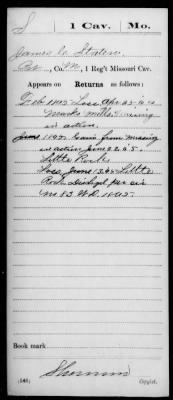 S | 1 Cav. | Mo.
James C. Staten
Co. M, 1 Reg't Missouri Cav.
Appears on Returns as follows:
Feb 1865 Loss Apr 25 64
Marks Mills, missing
in action.
June 1865 Gain from missing
in action June 22 65
Little Rock
Loss June 65 Little
Rock Dischgd per cir
No 83 W.D. 1865.
Book mark
(546)
Copyist.